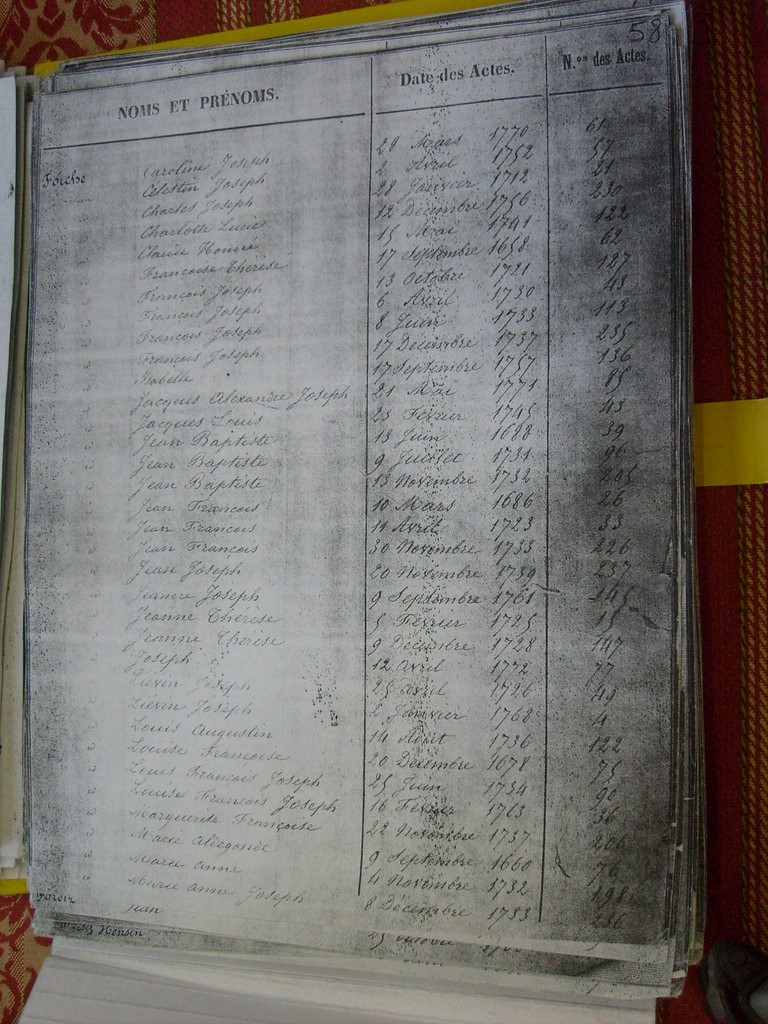 58
NOMS ET PRÉNOMS. Date des Actes. N.os des Actes.
Forche Caroline Joseph 28 Mars 1770 61
Celestin Joseph 2 Avril 1752 57
Charles Joseph 28 Janvier 1712 21
Charlotte Lucie 12 Decembre 1756 230
Claude Honoré 15 Mai 1741 122
Francoise Thérèse 17 Septembre 1658 62
François Joseph 13 Octobre 1721 127
François Joseph 6 Avril 1730 43
François Joseph 8 Juin 1733 113
François Joseph 17 Decembre 1737 235
Isabelle 17 Septembre 1757 136
Jacques Alexandre Joseph 21 Mai 1771 85
Jacques Louis 23 Février 1745 43
Jean Baptiste 13 Juin 1688 39
Jean Baptiste 9 Juillet 1731 96
Jean Baptiste 13 Novembre 1732 205
Jean François 10 Mars 1686 26
Jean François 11 Avril 1723 33
Jean François 30 Novembre 1733 226
Jean Joseph 20 Novembre 1739 237
Jeanne Joseph 9 Septembre 1761 245
Jeanne Thérèse 5 Février 1725 15
Jeanne Thérèse 9 Decembre 1728 147
Joseph 12 Avril 1772 77
Liévin Joseph 25 Avril 1726 49
Lievin Joseph 2 Janvier 1768 4
Louis Augustin 14 Août 1736 122
Louise Francoise 20 Decembre 1678 75
Louis François Joseph 25 Juin 1734 90
Louise François Joseph 16 Février 1763 36
Marguerite Françoise 22 Novembre 1737 206
Marie Aldegonde 9 Septembre 1660 76
Marie Anne 4 Novembre 1732 198
Marie Anne Joseph 8 Décembre 1733 236
Jean 25 Octobre
Hensin